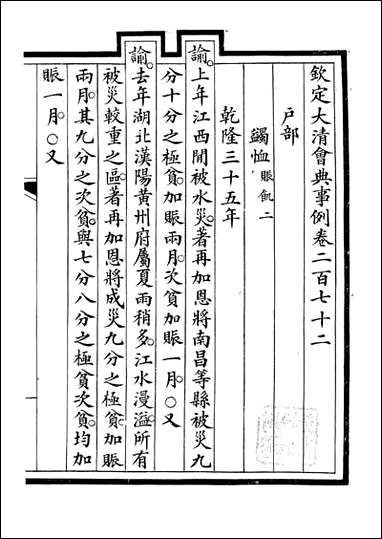 欽定大清會典事例卷二百七十二
戶部
蠲恤賑飢二
乾隆三十五年
諭。上年江西閒被水災。著再加恩將南昌等縣被災九
分十分之極貧。加賑兩月。次貧加賑一月。○又
諭。去年湖北漢陽黃州府屬夏雨稍多。江水漫溢。所有
被災較重之區。著再加恩將成災九分之極貧。加賑
兩月。其九分之次貧。與七分八分之極貧次貧。均加
賑一月。○又